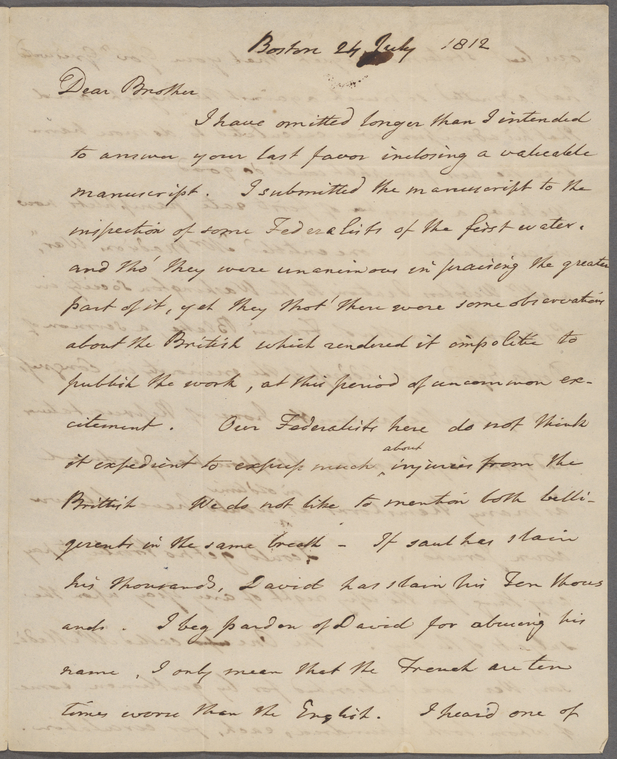 Boston 24 July 1812
Dear Brother
I have omitted longer than I intended
to answer your last favor inclosing a valuable
manuscript. I submitted the manuscript to the
inspection of some Federalists of the first water,
and tho' they were unanimous in praising the greater
part of it, yet they thot' there were some observations
about the British which rendered it impolitic to
publish the work, at this period of uncommon ex-
citement. Our Federalists here do not think
it expedient to express much about injuries from the
Brittish We do not like to mention both belli-
gerents in the same breath - If saul has slain
his thousand, David has slain his Ten thous
ands. I beg pardon of David for abusing his
name, I only mean that the French are ten
times worse than the English. I heard one of